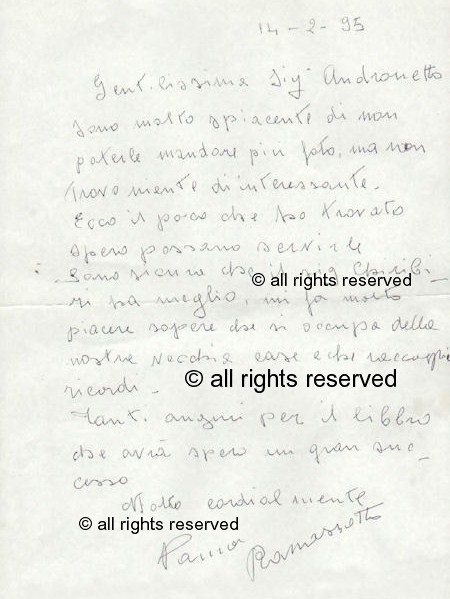 14-2-95
Gentilissima Sig Andronetto
sono molto spiacente di non
poterle mandare più foto, ma non
trovo niente di interessante.
Ecco il poco che ho trovato
spero possano servirle
Sono sicura che il sig
© all rights reserved
sa meglio, mi fa molto
piacere sapere che si occupa della
nostra vecchia casa e che raccoglie
ricordi.
© all rights reserved
Tanti auguri per il libbro
che avrà spero un gran suc-
cesso
Molto cordialmente
© all rights reserved
Ramazzotto